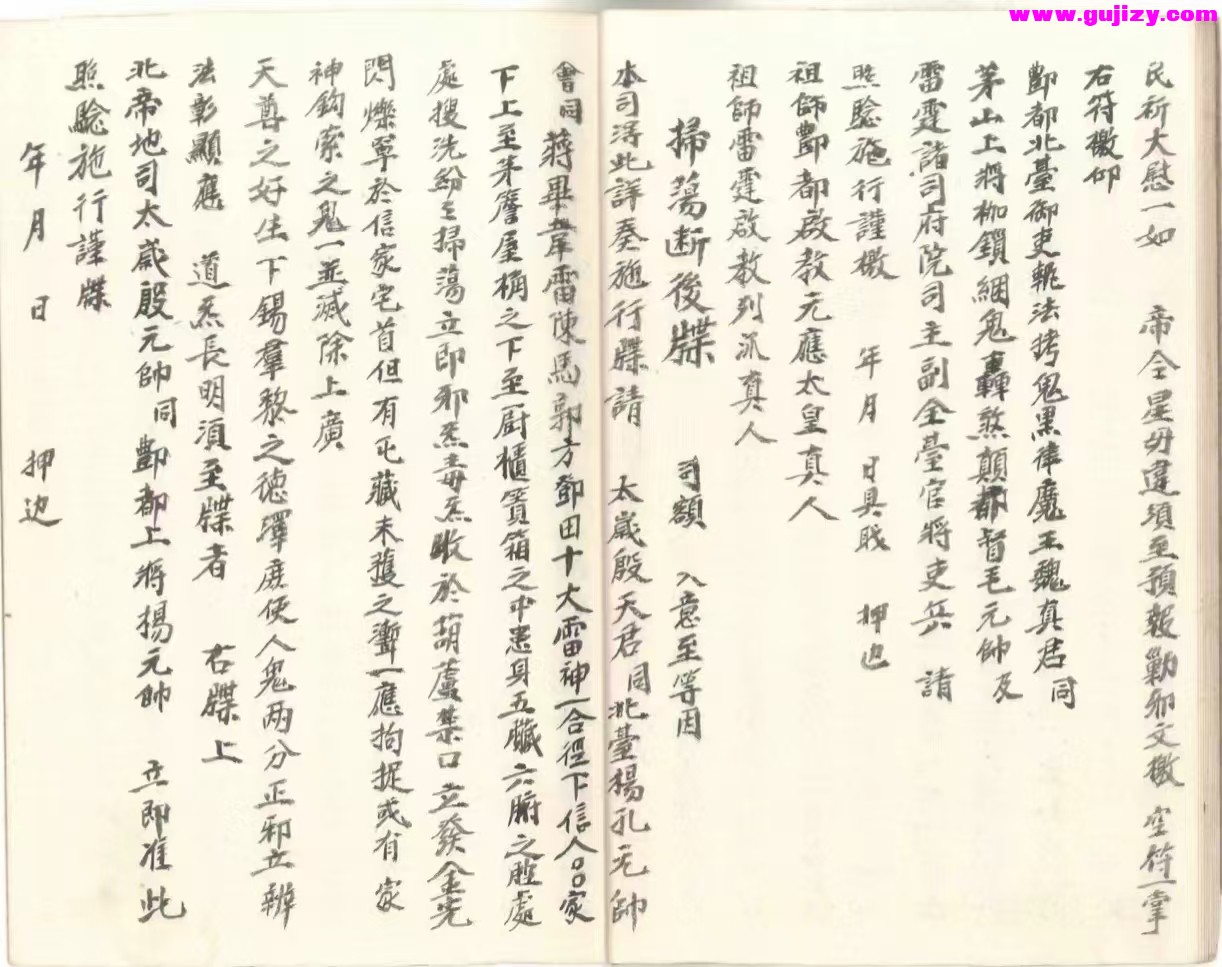 www.gujizy.com
民祈大慰一如 帝令星毋違須至預報勦邪文檄 空符一掌
右符檄仰
酆都北臺御史執法拷鬼黑律魔王魏真君同
茅山上將枷鎖綑鬼轟煞顛都督毛元帥及
雷霆諸司府院司主副全臺官將吏兵 請
照驗施行謹檄 年 月 日具職 押边
祖師酆都啟教元應太皇真人
祖師雷霆啟教列派真人
掃蕩断後牒 司額 入意至等因
本司淂此詳奏施行牒請 太歲殷天君同北臺楊孔元帥
會同蔣畢華雷陳馬郭方鄧田十大雷神一合徑下信人○○家
下上至茅簷屋桷之下至厨櫃簣箱之中患身五臟六腑之胜處
處搜洗紛〻掃蕩立即邪炁毒炁收於葫蘆禁口立發金光
閃爍罩於信家宅首但有屯藏未獲之一應拘捉或有家
神鈎索之鬼一並滅除上廣
天尊之好生下錫羣黎之德澤庶使人鬼两分正邪立辨
法彰顯應 道炁長明須至牒者 右牒上
北帝地司太歲殷元帥同酆都上將楊元帥 立即准此
照驗施行謹牒
年 月 日 押边